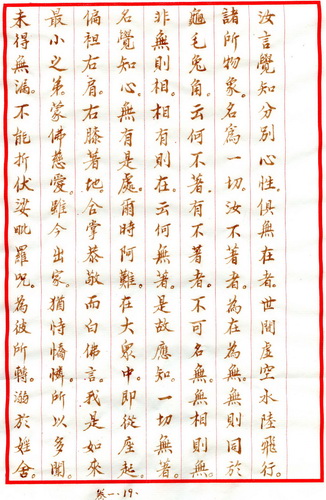 汝言覺知分別心性。俱無在者。世間虛空水陸飛行。
諸所物象。名為一切。汝不著者。為在為無。無則同於
龜毛兔角。云何不著。有不著者。不可名無。無相則無。
非無則相。相有則在。云何無著。是故應知。一切無著。
名覺知心。無有是處。爾時阿難。在大眾中。即從座起。
偏袒右肩。右膝著地。合掌恭敬。而白佛言。我是如來
最小之弟。蒙佛慈愛。雖今出家。猶恃憍憐。所以多聞
未得無漏。不能折伏娑毗羅咒。為彼所轉。溺於婬舍。
卷一.19.